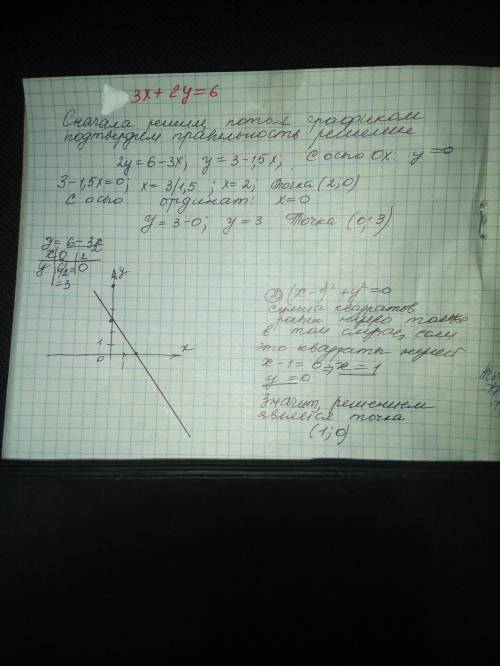 3x + 2y = 6
Сначала решим, потом графиком
подтвердим правильность решение
2y = 6 - 3x, y = 3 - 1,5x, с осью Ox: y = 0
3 - 1,5x = 0; x = 3/1,5; x = 2, точка (2; 0)
с осью ординат: x = 0
y = 3 - 0; y = 3 Точка (0; 3)
y = 6 - 3x
2
x 0 2
y 6/2 0
= 3
y
x
1
0
1
2) (x - 1)² + y² = 0
сумма квадратов
равна нулю только
в том случае, если
это квадраты нулей
x - 1 = 0 => x = 1
y = 0
Значит, решением
является точка
(1; 0)